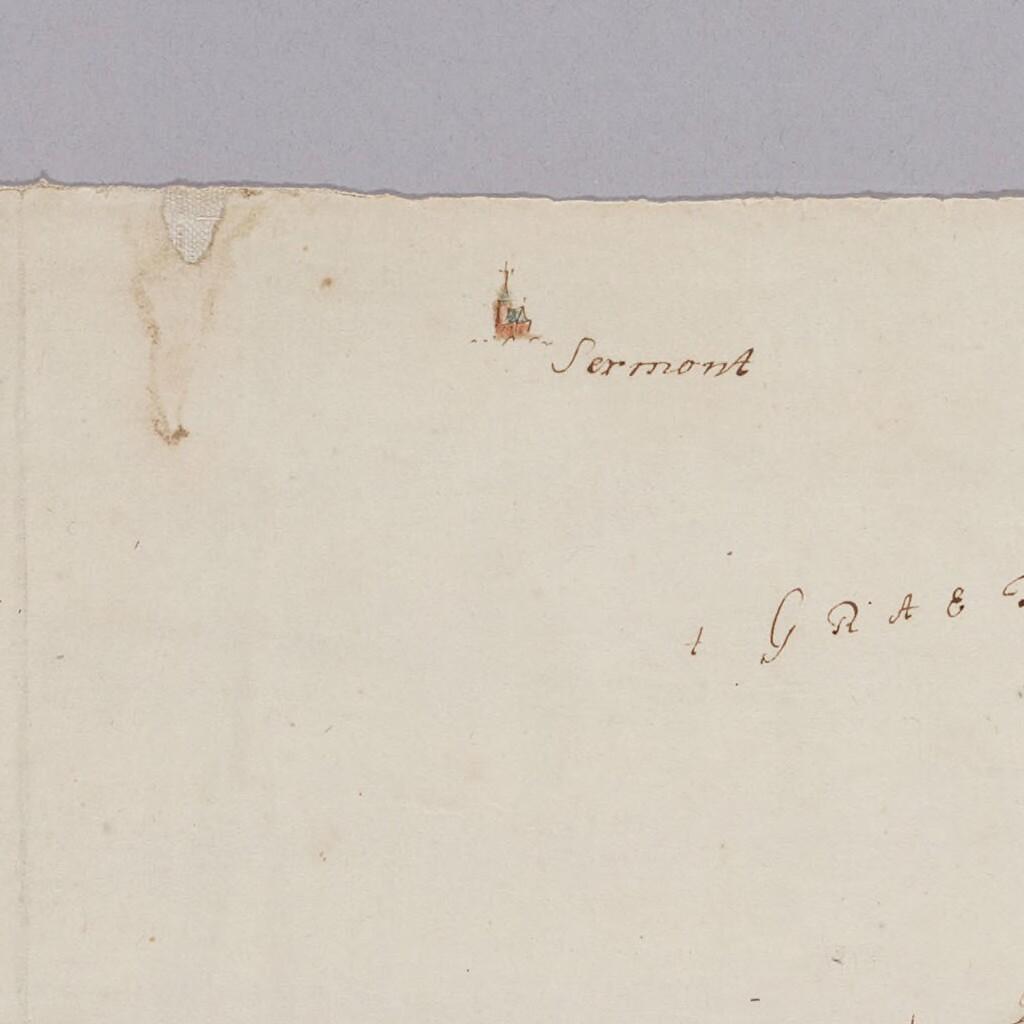 Sermont
t GRAE